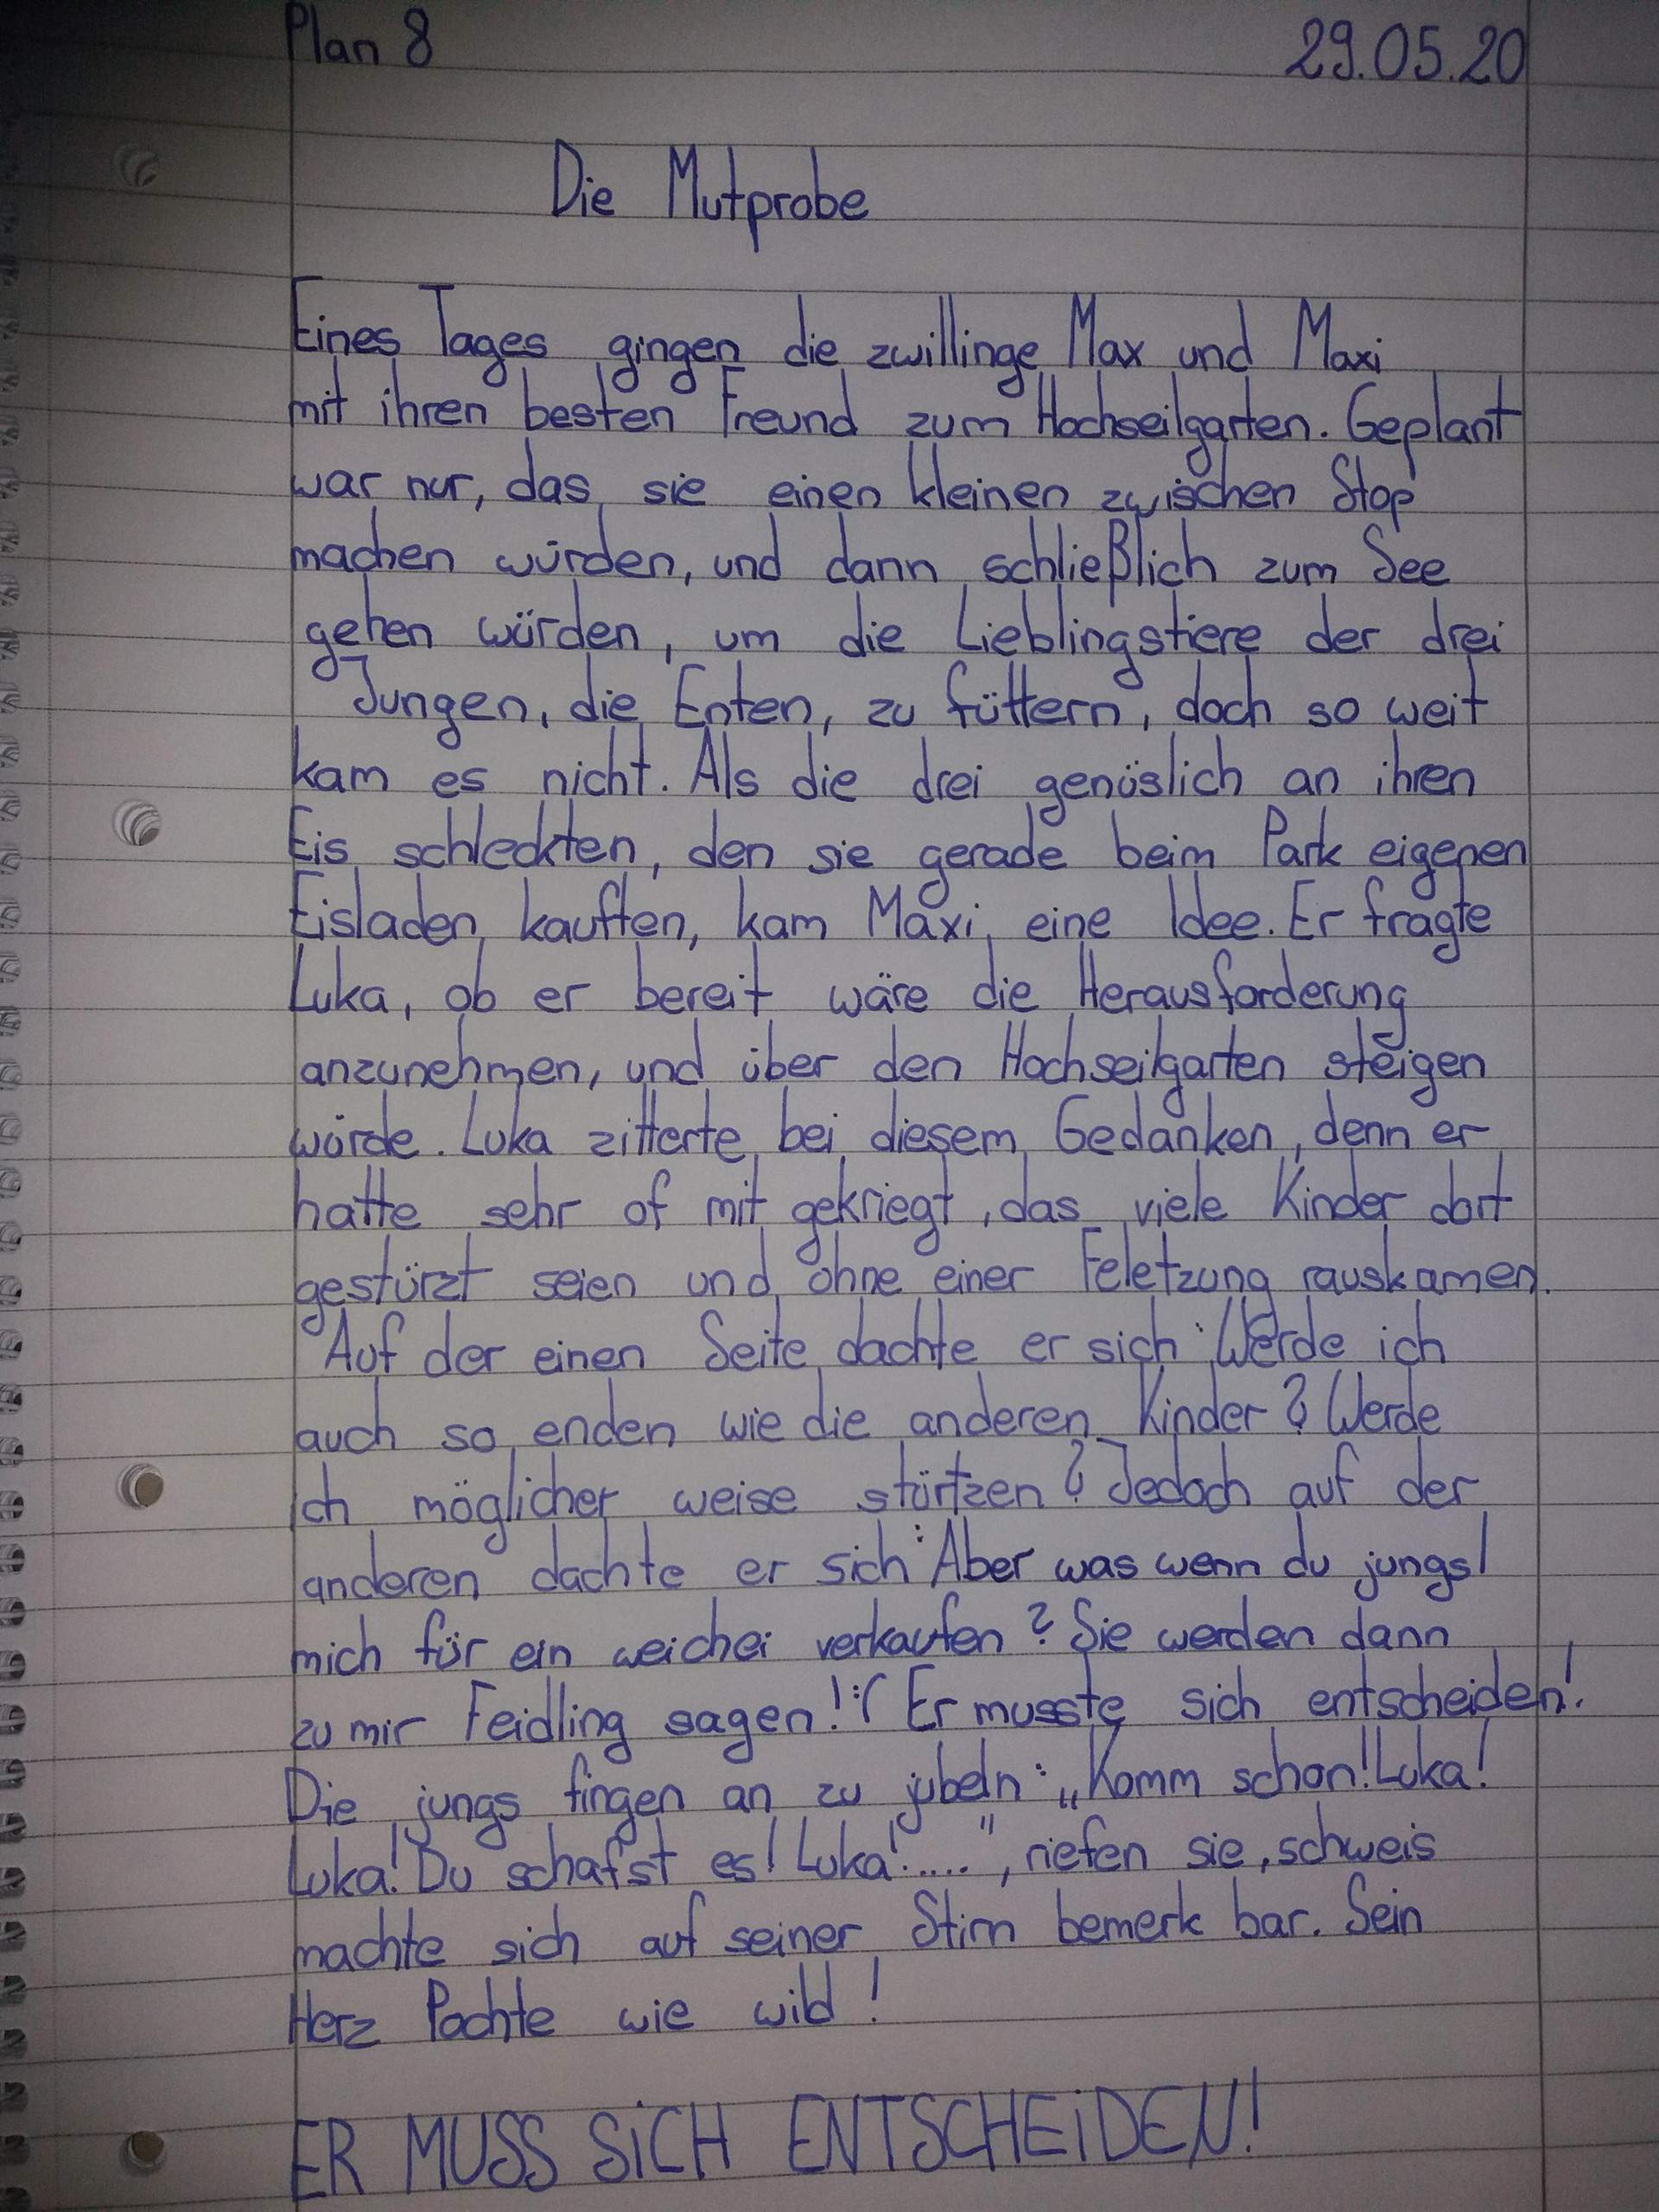 Plan 8 29.05.20
Die Mutprobe
Eines Tages gingen die zwillinge Max und Maxi
mit ihren besten Freund zum Hochseilgarten. Geplant
war nur, das sie einen kleinen zwischen Stop
machen würden, und dann schließlich zum See
gehen würden, um die Lieblingstiere der drei
Jungen, die Enten, zu füttern, doch so weit
kam es nicht. Als die drei genüslich an ihren
Eis schleckten, den sie gerade beim Park eigenen
Eisladen kauften, kam Maxi eine Idee. Er fragte
Luka, ob er bereit wäre die Herausforderung
anzunehmen, und über den Hochseilgarten steigen
würde. Luka zitterte bei diesem Gedanken, denn er
hatte sehr of mit gekriegt, das viele Kinder dort
gestürzt seien und ohne einer Feletzung rauskamen.
Auf der einen Seite dachte er sich: Werde ich
auch so enden wie die anderen Kinder? Werde
ich möglicher weise stürtzen? Jedoch auf der
anderen dachte er sich: Aber was wenn du jungs
mich für ein weichei verkaufen? Sie werden dann
zu mir Feidling sagen! :( Er musste sich entscheiden!
Die jungs fingen an zu jubeln: „Komm schon! Luka!
Luka! Du schafst es! Luka!.....", riefen sie, schweis
machte sich auf seiner Stirn bemerk bar. Sein
Herz Pochte wie wild!
ER MUSS SiCH ENTSCHEiDEN!